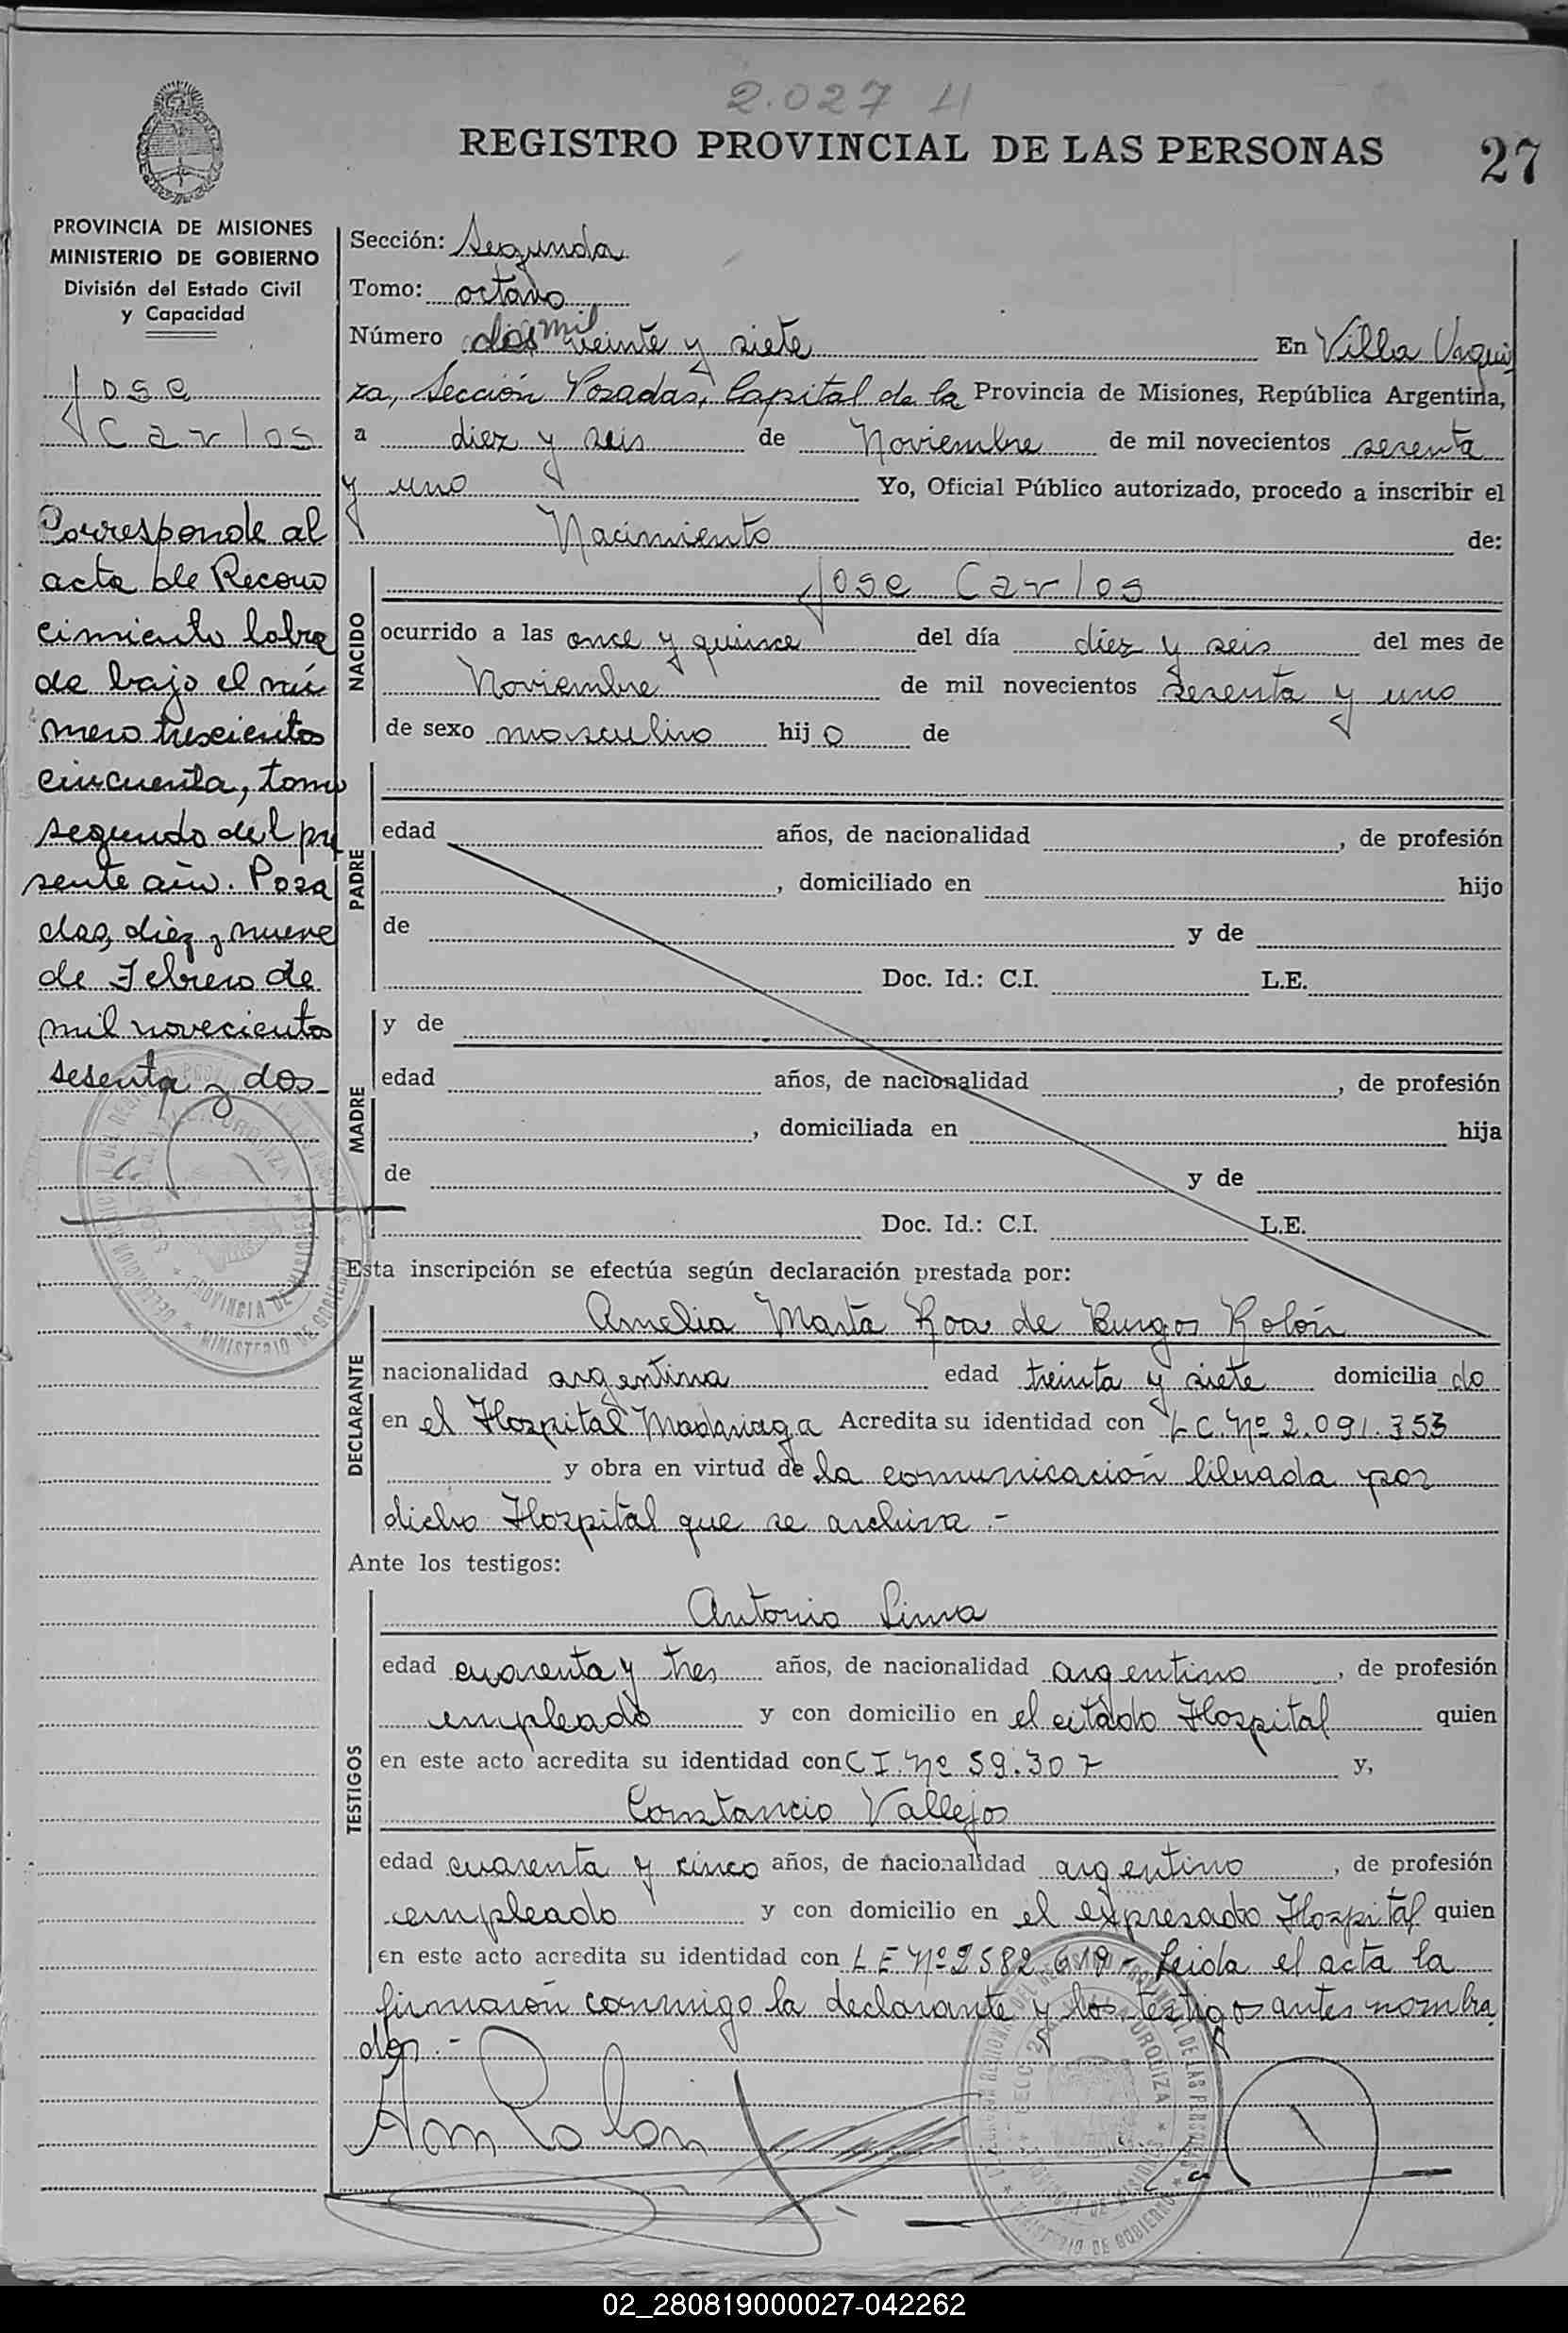 2.027 H
REGISTRO PROVINCIAL DE LAS PERSONAS
27
PROVINCIA DE MISIONES
MINISTERIO DE GOBIERNO
División del Estado Civil
y Capacidad
Jose
Carlos
Corresponde al
acta de Recono
cimiento labra
da bajo el nú
mero trescientos
cincuenta, tomo
segundo del pre
sente año. Posa
das, diez y nueve
de Febrero de
mil novecientos
sesenta y dos
Sección: Segunda
Tomo: octavo
Número dos mil veinte y siete En Villa Urqui
za, Sección Posadas, Capital de la Provincia de Misiones, República Argentina,
a diez y seis de Noviembre de mil novecientos sesenta
y uno Yo, Oficial Público autorizado, procedo a inscribir el
Nacimiento de:
NACIDO
Jose Carlos
ocurrido a las once y quince del día diez y seis del mes de
Noviembre de mil novecientos sesenta y uno
de sexo masculino hijo de
PADRE
edad años, de nacionalidad , de profesión
, domiciliado en hijo
de y de
Doc. Id.: C.I. L.E.
MADRE
y de
edad años, de nacionalidad , de profesión
, domiciliada en hija
de y de
Doc. Id.: C.I. L.E.
Esta inscripción se efectúa según declaración prestada por:
DECLARANTE
Amelia Marta Roa de Burgos Rolón
nacionalidad argentina edad treinta y siete domicilia do
en el Hospital Madariaga Acredita su identidad con L C. Nº 2.091.353
y obra en virtud de la comunicación librada por
dicho Hospital que se archiva.-
Ante los testigos:
TESTIGOS
Antonio Lima
edad cuarenta y tres años, de nacionalidad argentino, de profesión
empleado y con domicilio en el citado Hospital quien
en este acto acredita su identidad con C I. Nº 59.307 y,
Constancio Vallejos
edad cuarenta y cinco años, de nacionalidad argentino, de profesión
empleado y con domicilio en el expresado Hospital quien
en este acto acredita su identidad con L E Nº 2582.619.- Leida el acta la
firmaron conmigo la declarante y los testigos antes nombra
dos.-
02_280819000027-042262